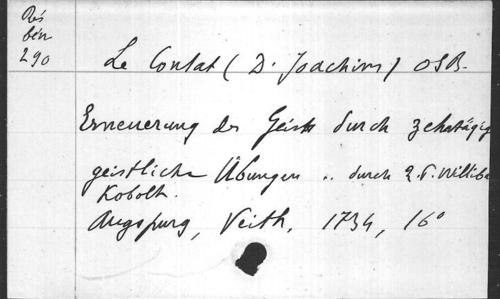 Rés
bén
290
Le Contat (D. Joachim) OSB.
Erneuerung des Geists durch zehntägig
geistliche Übungen .. durch R.P. Williba
Kobolt.
Augspurg, Veith, 1734, 16°